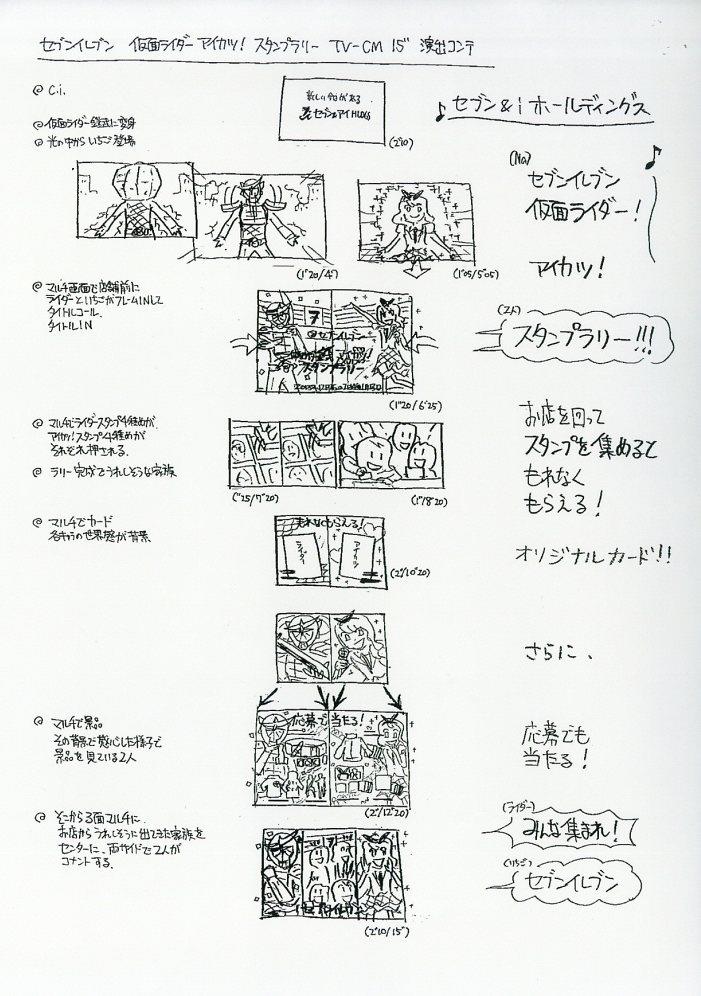 セブンイレブン 仮面ライダー アイカツ! スタンプラリー TV-CM 15" 演出コンテ
@ C.i.
新しい今日がある
セブン&アイHLDGS
(2"0)
♪ セブン&i ホールディングス
@ 仮面ライダー鎧武に変身
@ 光の中からいちご登場
(Na)
セブンイレブン
仮面ライダー!
アイカツ!
(1"20/4")
(1"05/5"05)
@ マルチ画面で店舗前に
ライダーといちごがフレームINして
タイトルコール.
タイトルIN
7
@セブンイレブン
スタンプラリー
(1"20/6"25)
(2人)
スタンプラリー!!!
@ マルチでライダースタンプ4種めが、
アイカツ!スタンプ4種めが
それぞれ押される.
@ ラリー完成でうれしそうな家族
("25/7"20)
(1"/8"20)
お店を回って
スタンプを集めると
もれなく
もらえる!
@ マルチでカード
各キャラの世界発が背景
もれなくもらえる!
ライダー
アイカツ
(2"/10"20)
オリジナルカード!!
さらに、
@ マルチで景品
その背景で感心した様子で
景品を見ている2人
応募で 当たる!
(2"/12"20)
応募でも
当たる!
@ そこから3面マルチに.
お店からうれしそうに出てきた家族を
センターに、両サイドで2人が
コメントする.
セブンイレブン
(2"10/15")
(ライダー)
みんな集まれ!
(いちご)
セブンイレブン